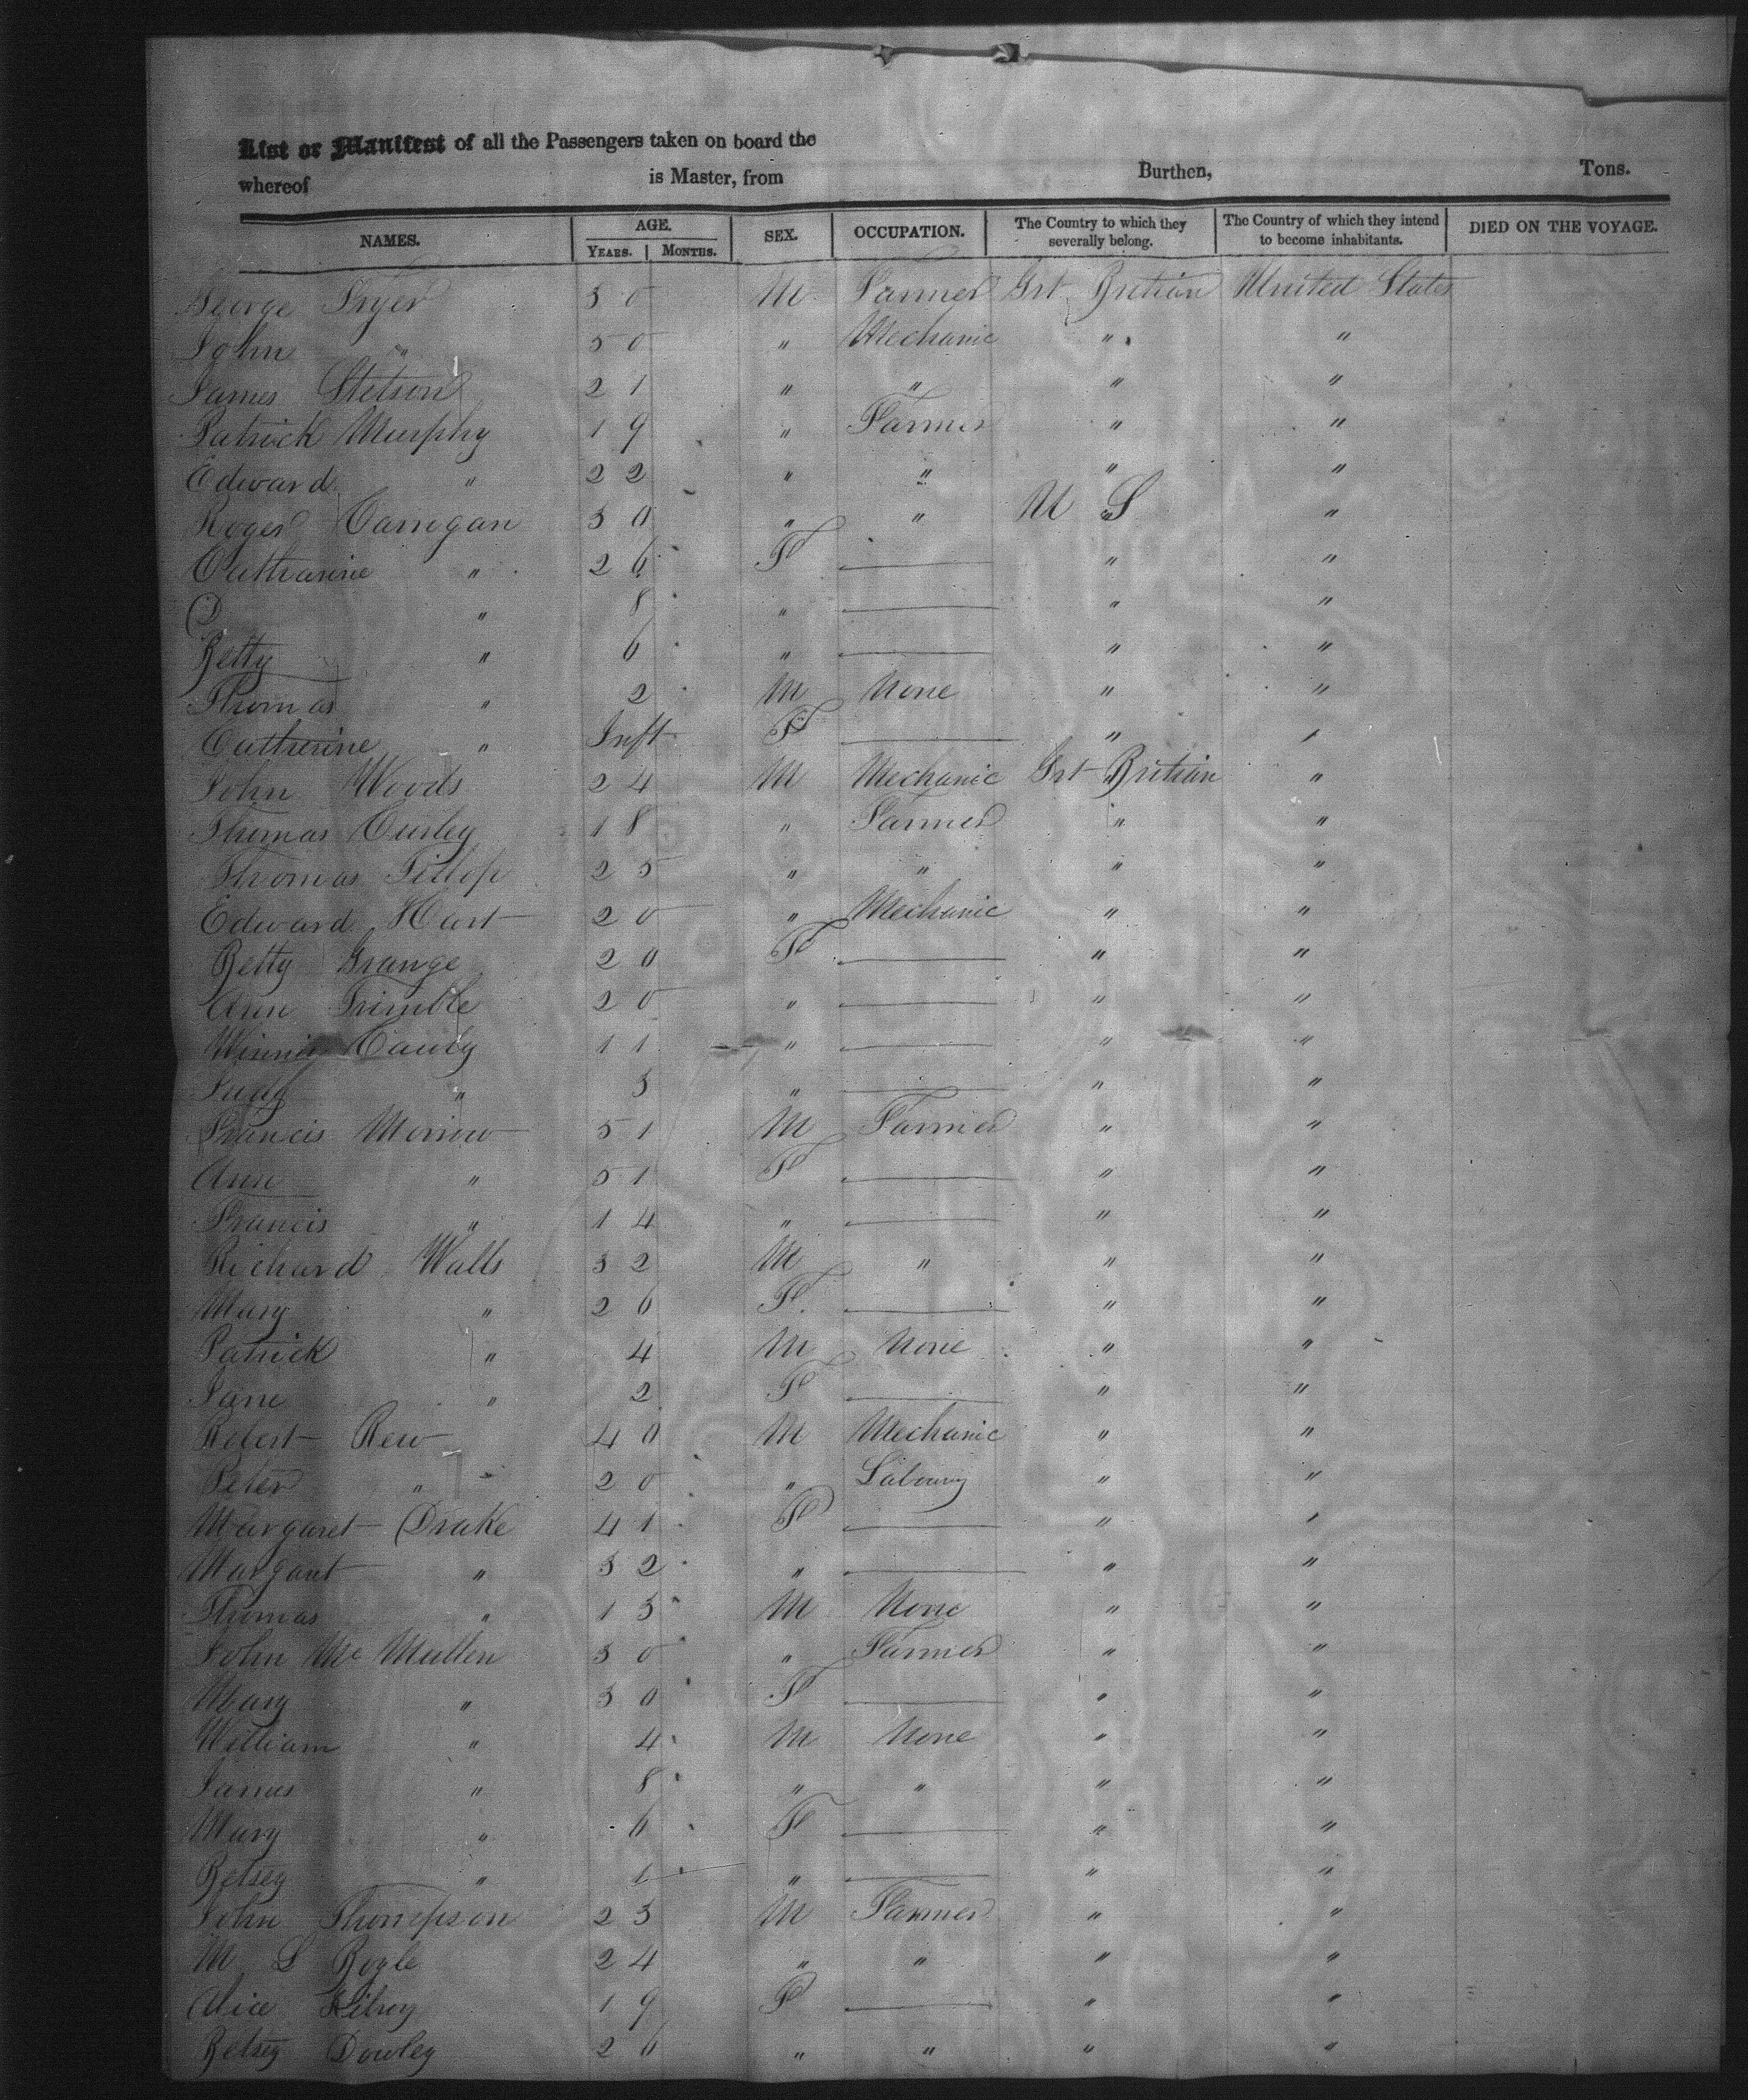 List or Manifest of all the Passengers taken on board the
whereof is Master, from Burthen, Tons.
NAMES. AGE. YEARS. MONTHS. SEX. OCCUPATION. The Country to which they severally belong. The Country of which they intend to become inhabitants. DIED ON THE VOYAGE.
George Fryer 30 M Farmer Grt Britian United States
John " 50 " Mechanic " "
James Stetson 21 " " " "
Patrick Murphy 19 " Farmer " "
Edward " 22 " " " "
Roger Carrigan 30 " " U S "
Catharine " 26 F — " "
" 8 " — " "
Betty " 6 " — " "
Thomas " 2 M None " "
Catherine " Inft F — " "
John Woods 24 M Mechanic Grt Britian "
Thomas Curley 18 " Farmer " "
Thomas 25 " " " "
Edward Hart 20 " Mechanic " "
Betty Grange 20 F — " "
Ann Trimble 20 " — " "
11 " — " "
Judy " 3 " — " "
Francis Morrow 51 M Farmer " "
Ann " 51 F — " "
Francis " 14 " — " "
Richard Walls 32 M " " "
Mary " 26 F. — " "
Patrick " 4 M None " "
Jane " 2 F — " "
Robert Rew 40 M Mechanic " "
Peter " 20 " " "
Margaret Drake 41 F — " "
Margaret " 32 " — " "
Thomas " 13 M None " "
John Mc Mullen 30 " Farmer " "
Mary " 30 F — " "
William " 4 M None " "
James " 8 " " " "
Mary " 6 F — " "
Betsey " 1 " — " "
John Thompson 23 M Farmer " "
M L Boyle 24 " " " "
Alice Kilroy 19 F — " "
Betsey Dowley 26 " " " "